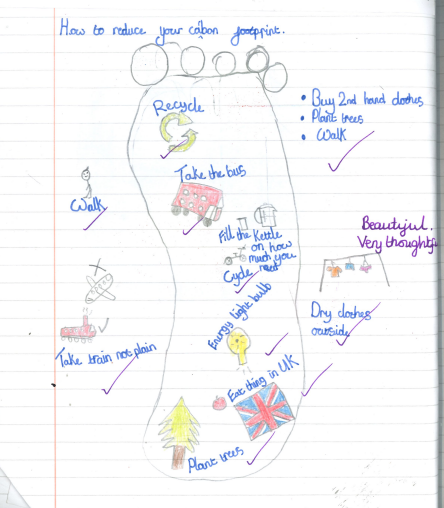 How to reduce your cabon footprint.
Recycle
• Buy 2nd hand clothes
• Plant trees
• Walk
Take the bus
Walk
Fill the Kettle
on how
much you
need
Cycle
Beautiful.
Very thoughtful
Energy light bulb
Dry clothes
outside
Take train not plain
Eat thing in UK
Plant trees